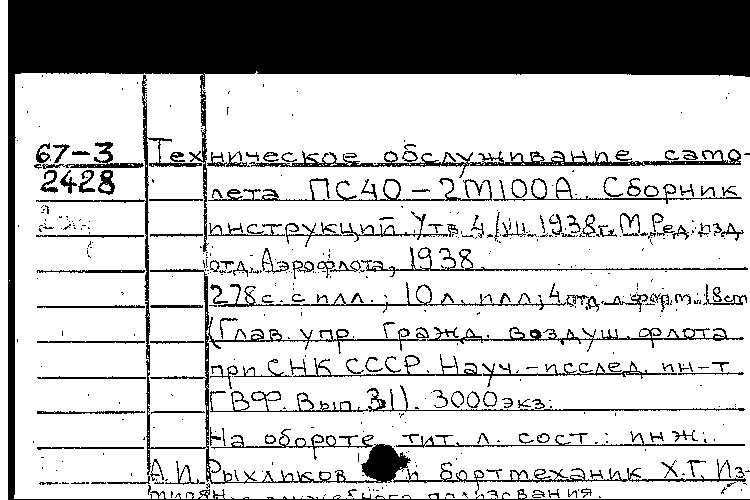 67-3 Техническое обслуживание само-
2428 лета ПС40-2М100А. Сборник
инструкций. Утв. 4/VII 1938г. М. Ред.-изд.
отд. Аэрофлота, 1938.
278с. с илл.; 10 л. илл; 4 отд. л. форм. 18cm
(Глав. упр. Гражд. воздуш. флота
при СНК СССР. Науч.-исслед. ин-т
ГВФ. Вып. 31). 3000экз.
На обороте тит. л. сост.: инж.
А.И. Рыхликов и бортмеханик Х.Г. Из-
служебного пользования.